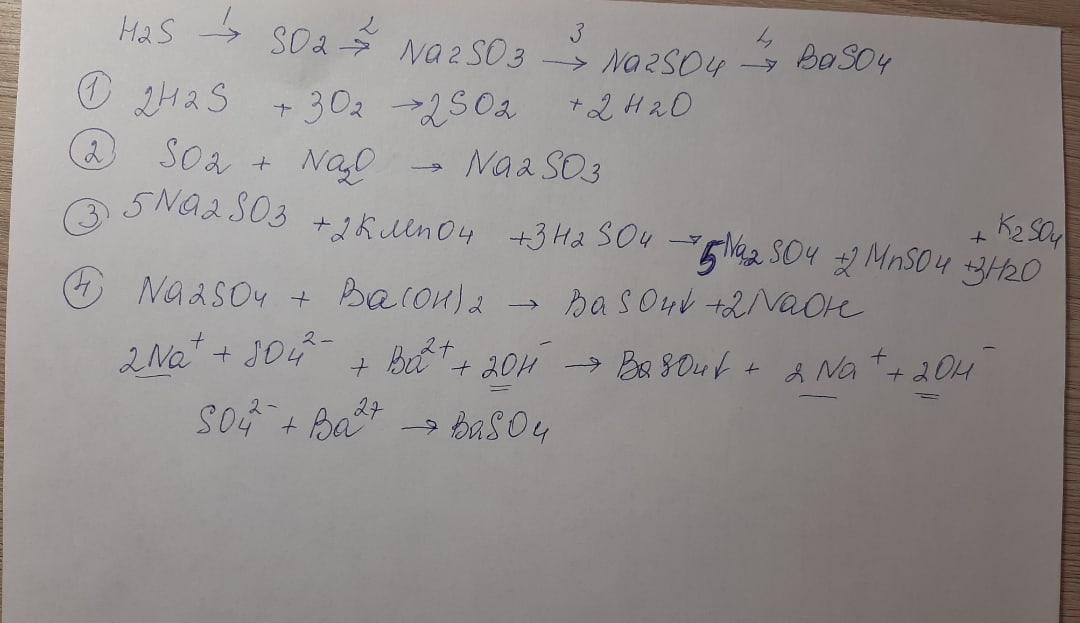 H2S 1→ SO2 2→ Na2SO3 3→ Na2SO4 4→ BaSO4
① 2H2S + 3O2 → 2SO2 + 2H2O
② SO2 + Na2O → Na2SO3
③ 5Na2SO3 + 2KMnO4 + 3H2SO4 → 5Na2SO4 + 2MnSO4 + K2SO4 + 3H2O
④ Na2SO4 + Ba(OH)2 → BaSO4↓ + 2NaOH
2Na⁺ + SO4²⁻ + Ba²⁺ + 2OH⁻ → BaSO4↓ + 2Na⁺ + 2OH⁻
SO4²⁻ + Ba²⁺ → BaSO4